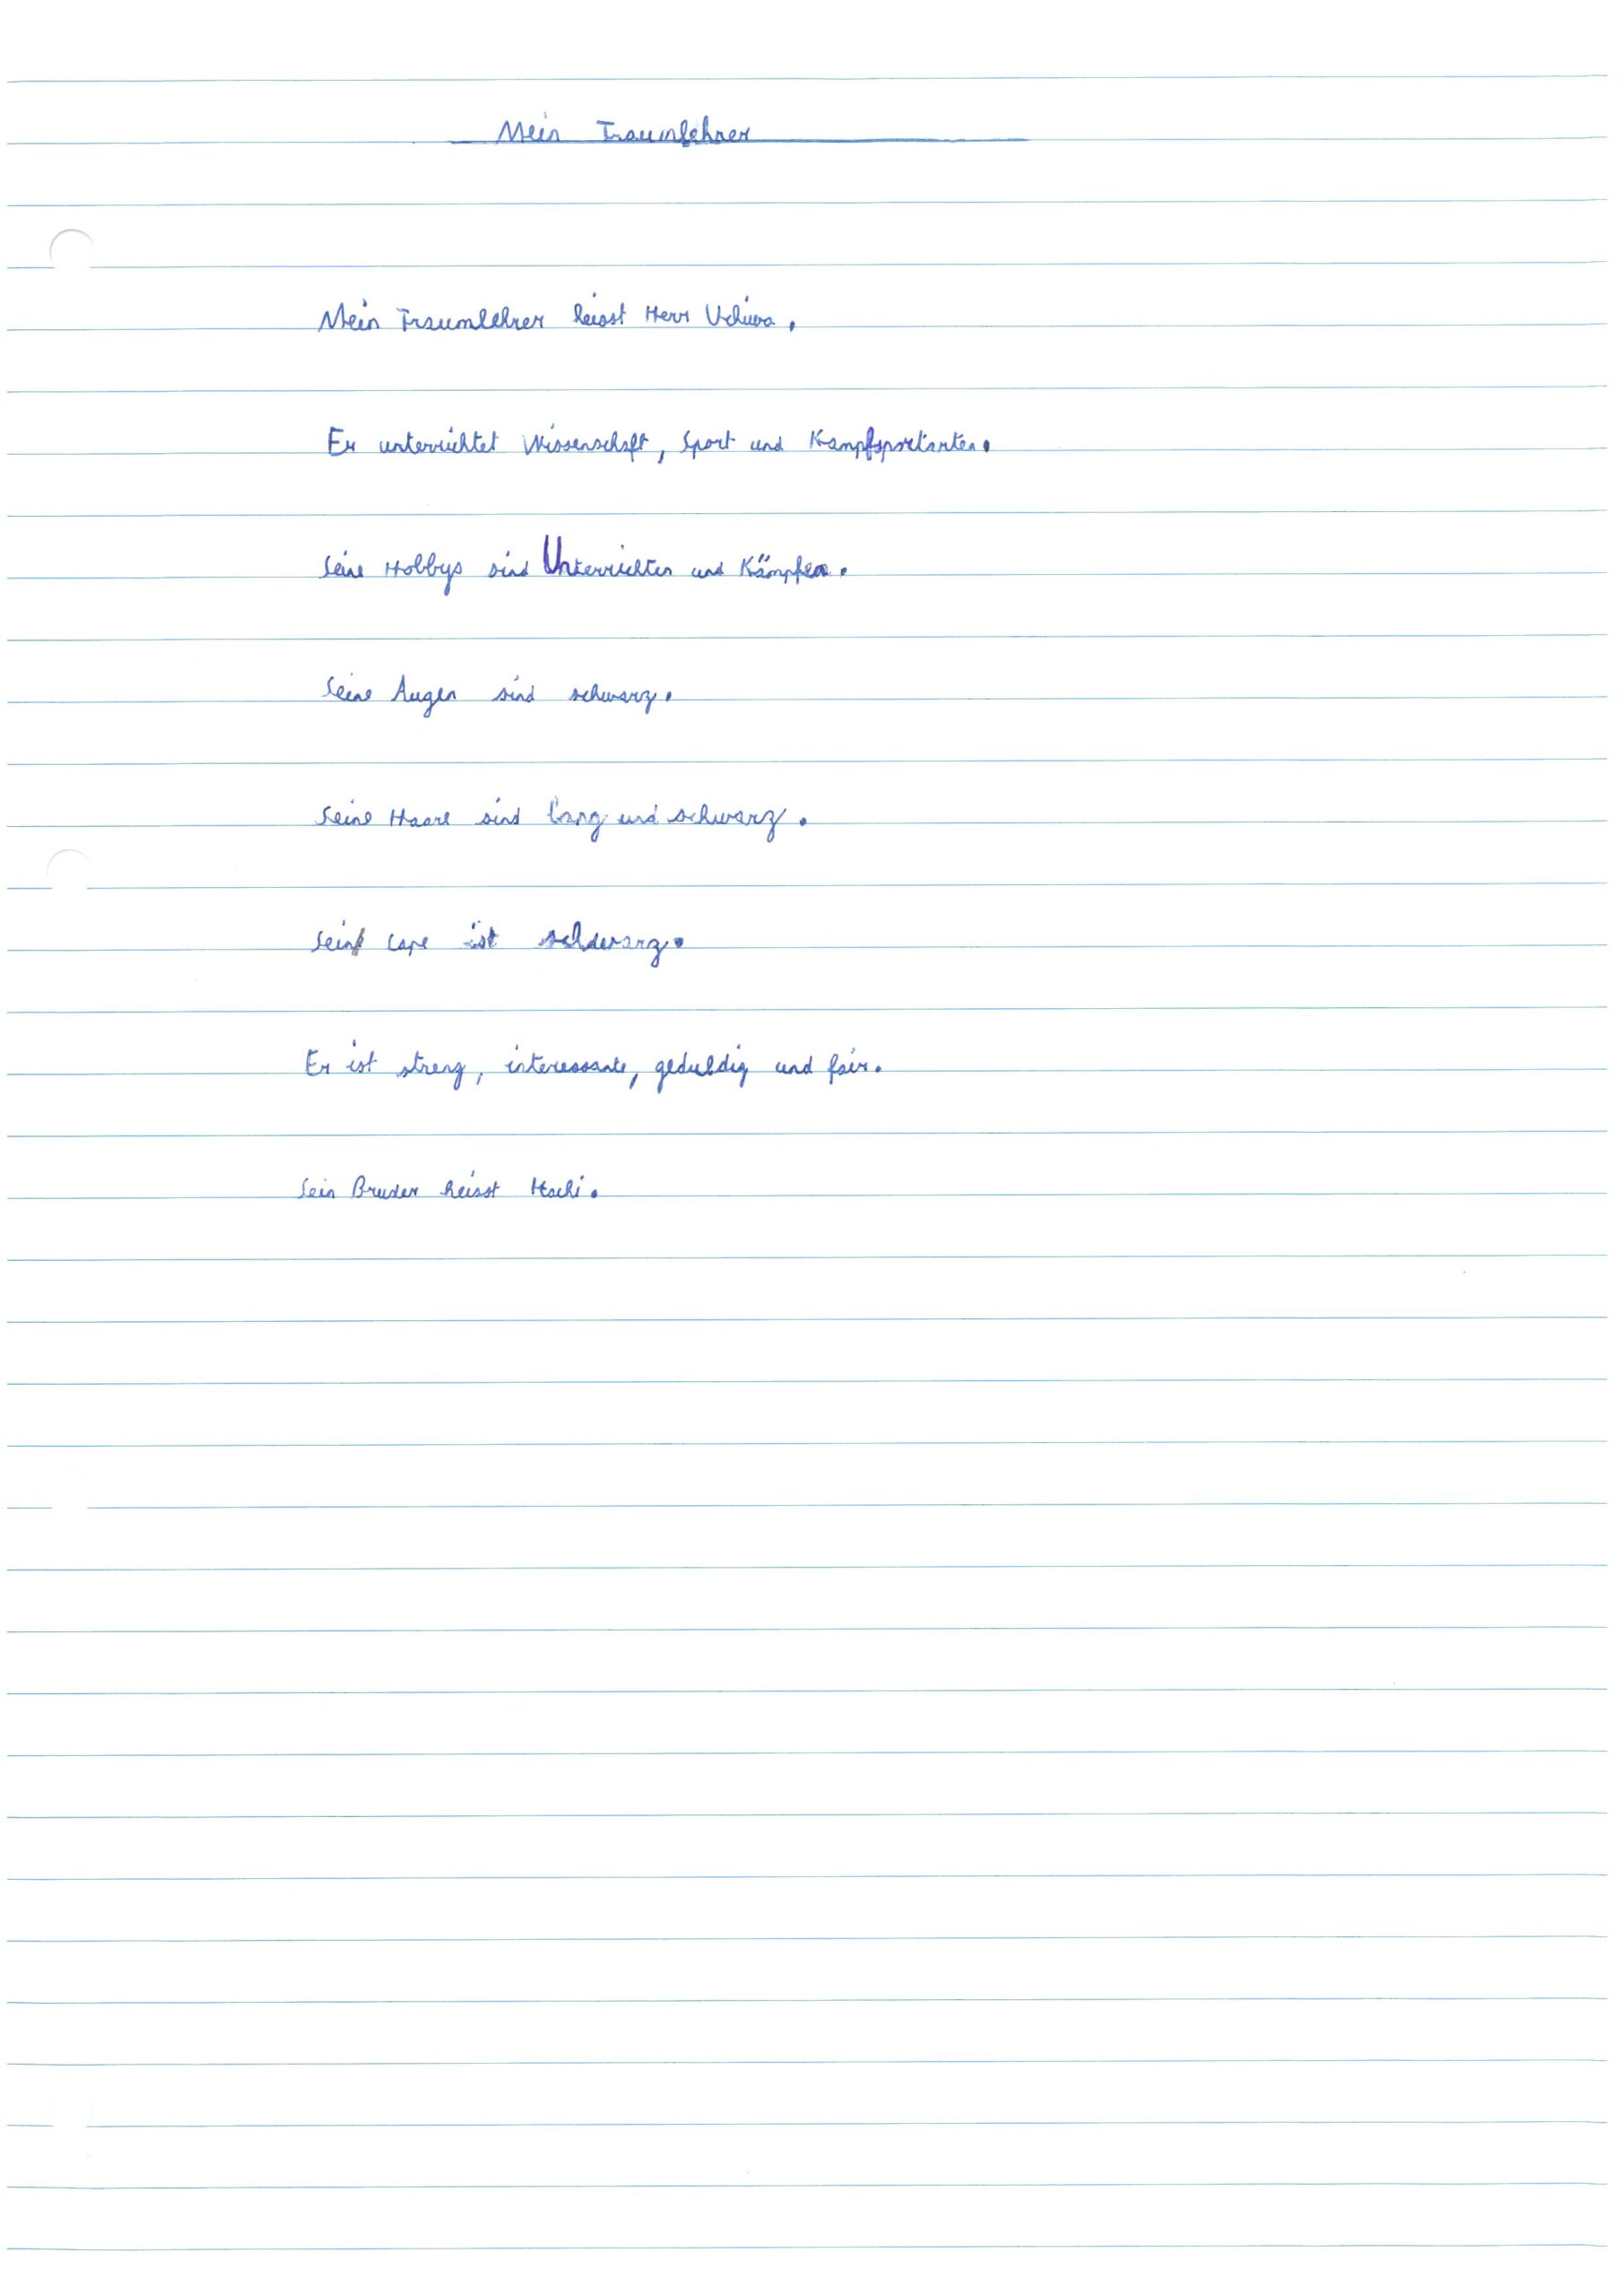 Mein Traumlehrer
Mein Traumlehrer heisst Herr Uchiwa.
Er unterrichtet Wissenschaft, Sport und Kampfsportarten.
Seine Hobbys sind Unterrichten und Kämpfen.
Seine Augen sind schwarz.
Seine Haare sind lang und schwarz.
Sein Cape ist schwarz.
Er ist streng, interessante, geduldig und fair.
Sein Bruder heisst Itachi.